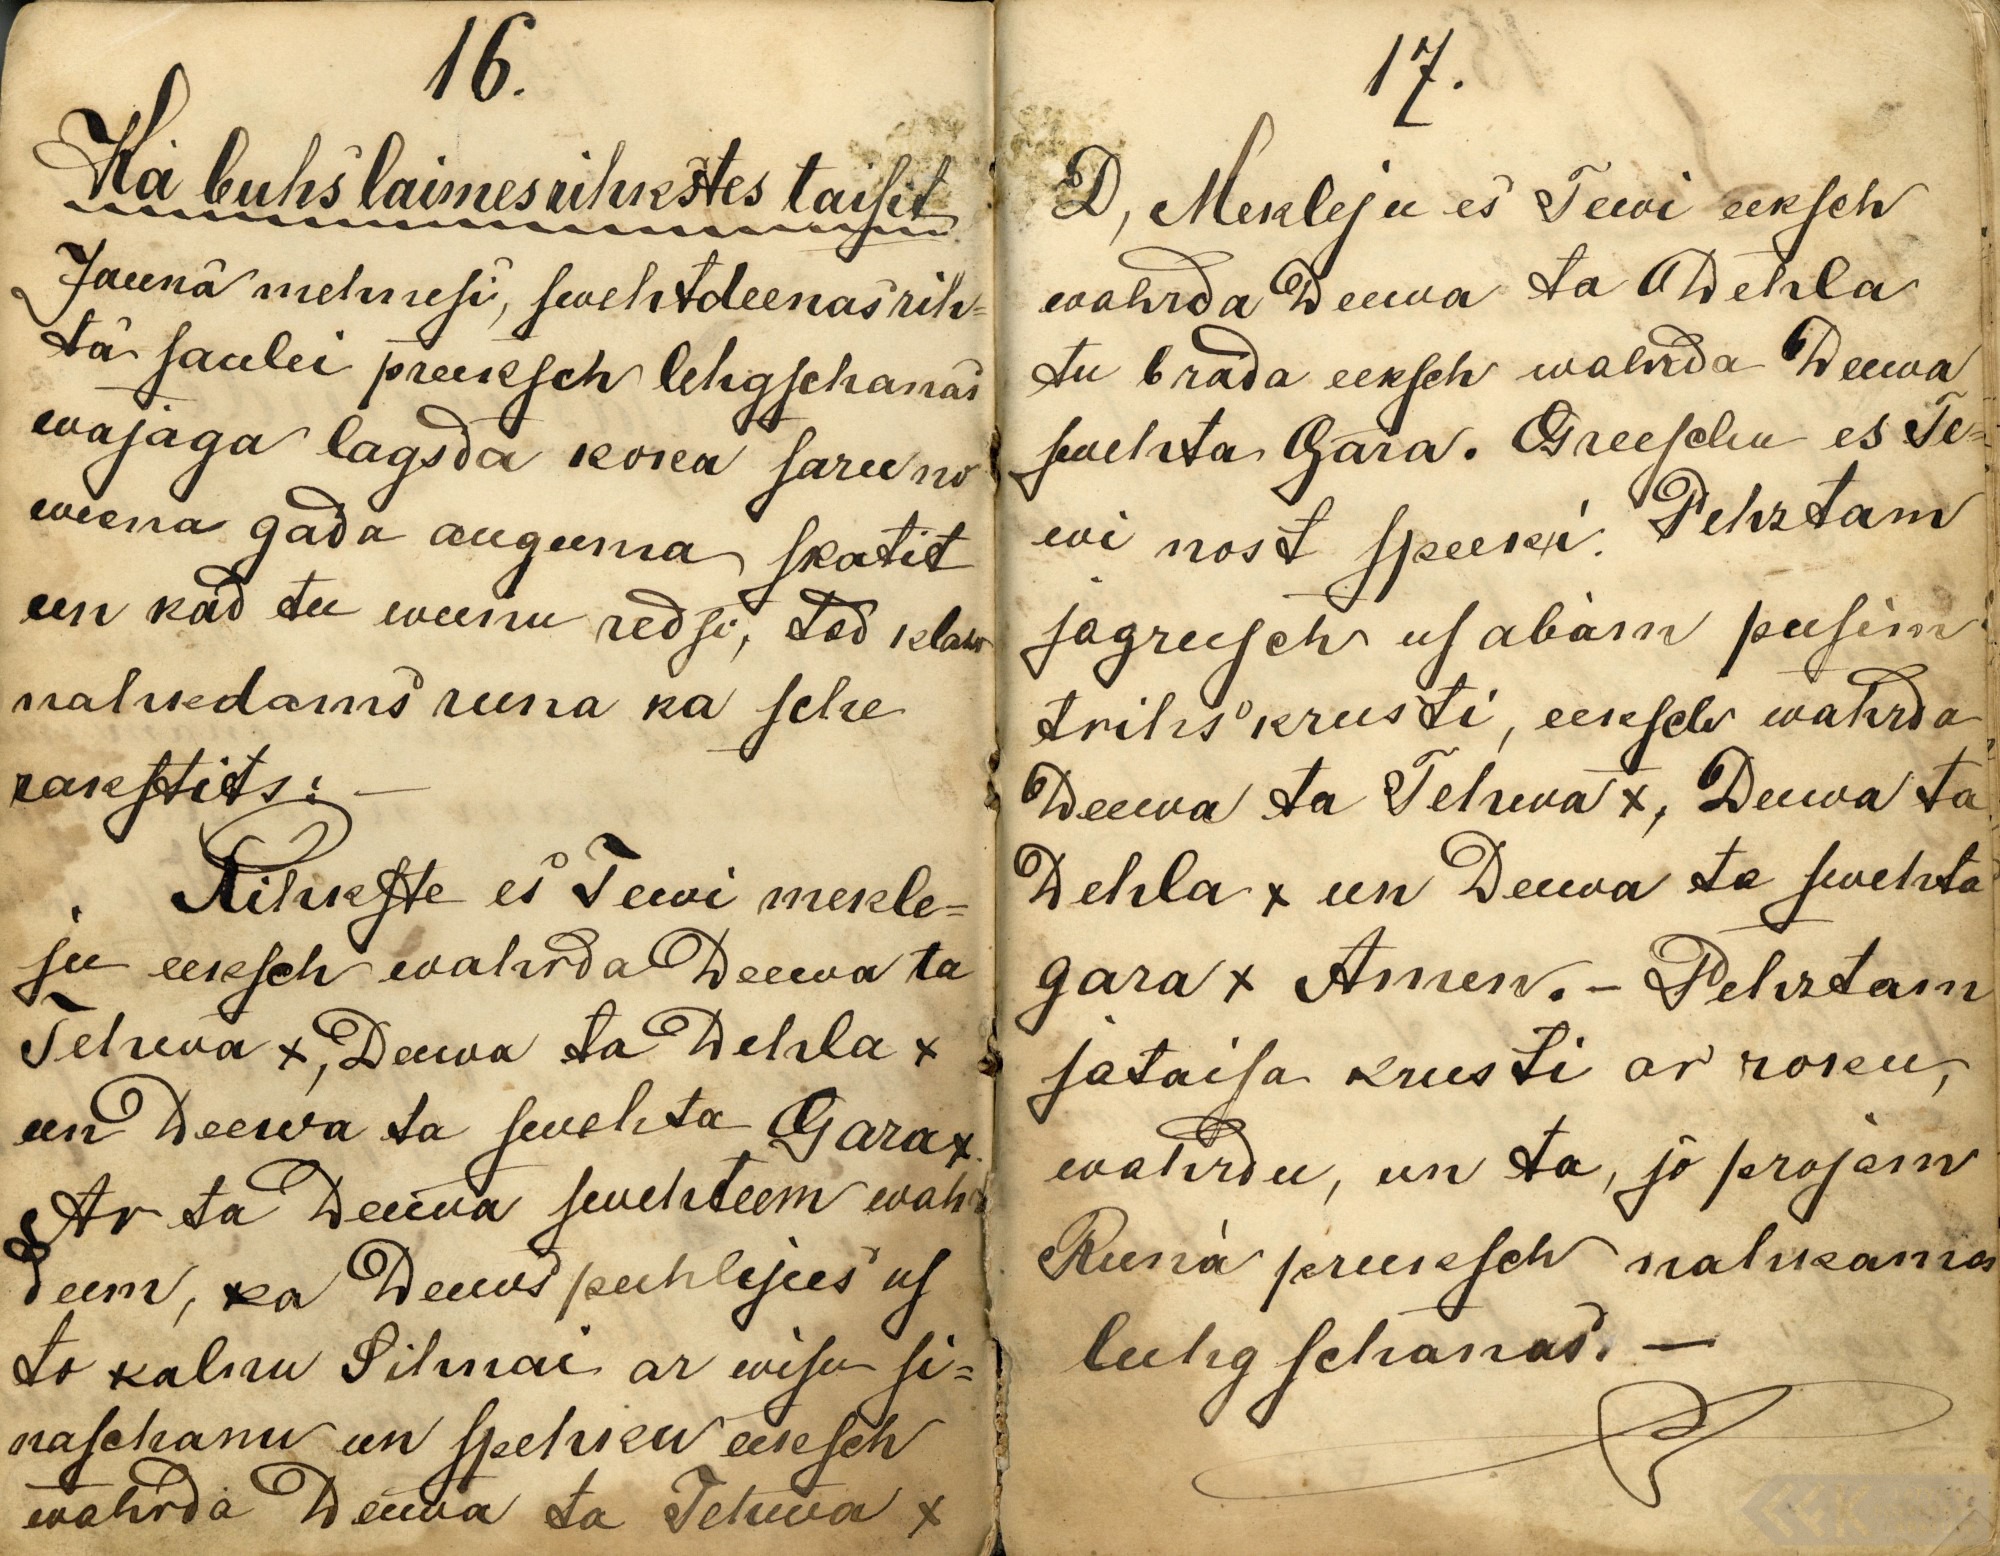 16.
Kà buhs laimes rihkstes taisit
Jaunà mehnesi, swehtdeenas rih=
tà saulei preeksch lehgschanas
wajaga lagsda koka saru no
weena gada auguma skatit
un kad tu weenu redsi, tad klaht
nahkdams runa ka sche
rakstits: —
Rihkste es Tewi mekle=
ju eeksch wahrda Deewa ta
Tehwa x, Deewa ta Dehla x
un Deewa ta swehta Gara x.
Ar ta Deewa swehteem wahr
deem, ka Deews puhlejees us
to kalnu Sihnai ar wisu si=
naschanu un spehku eeksch
wahrda Deewa ta Tehwa x
17.
D, Mekleju es Tewi eeksch
wahrda Deewa ta Dehla
tu brada eeksch wahrda Deewa
swehta Gara. Greeschu es Te=
wi nost speeki. Pehztam
jagreesch us abàm pusèm
trihs krusti, eeksch wahrda
Deewa ta Tehwa x, Deewa ta
Dehla x un Deewa ta swehta
gara x Amen. — Pehztam
jataisa krusti ar roku,
wahrdu, un ta, jo projam
Runà preeksch nahkamas
luhgschanas. —